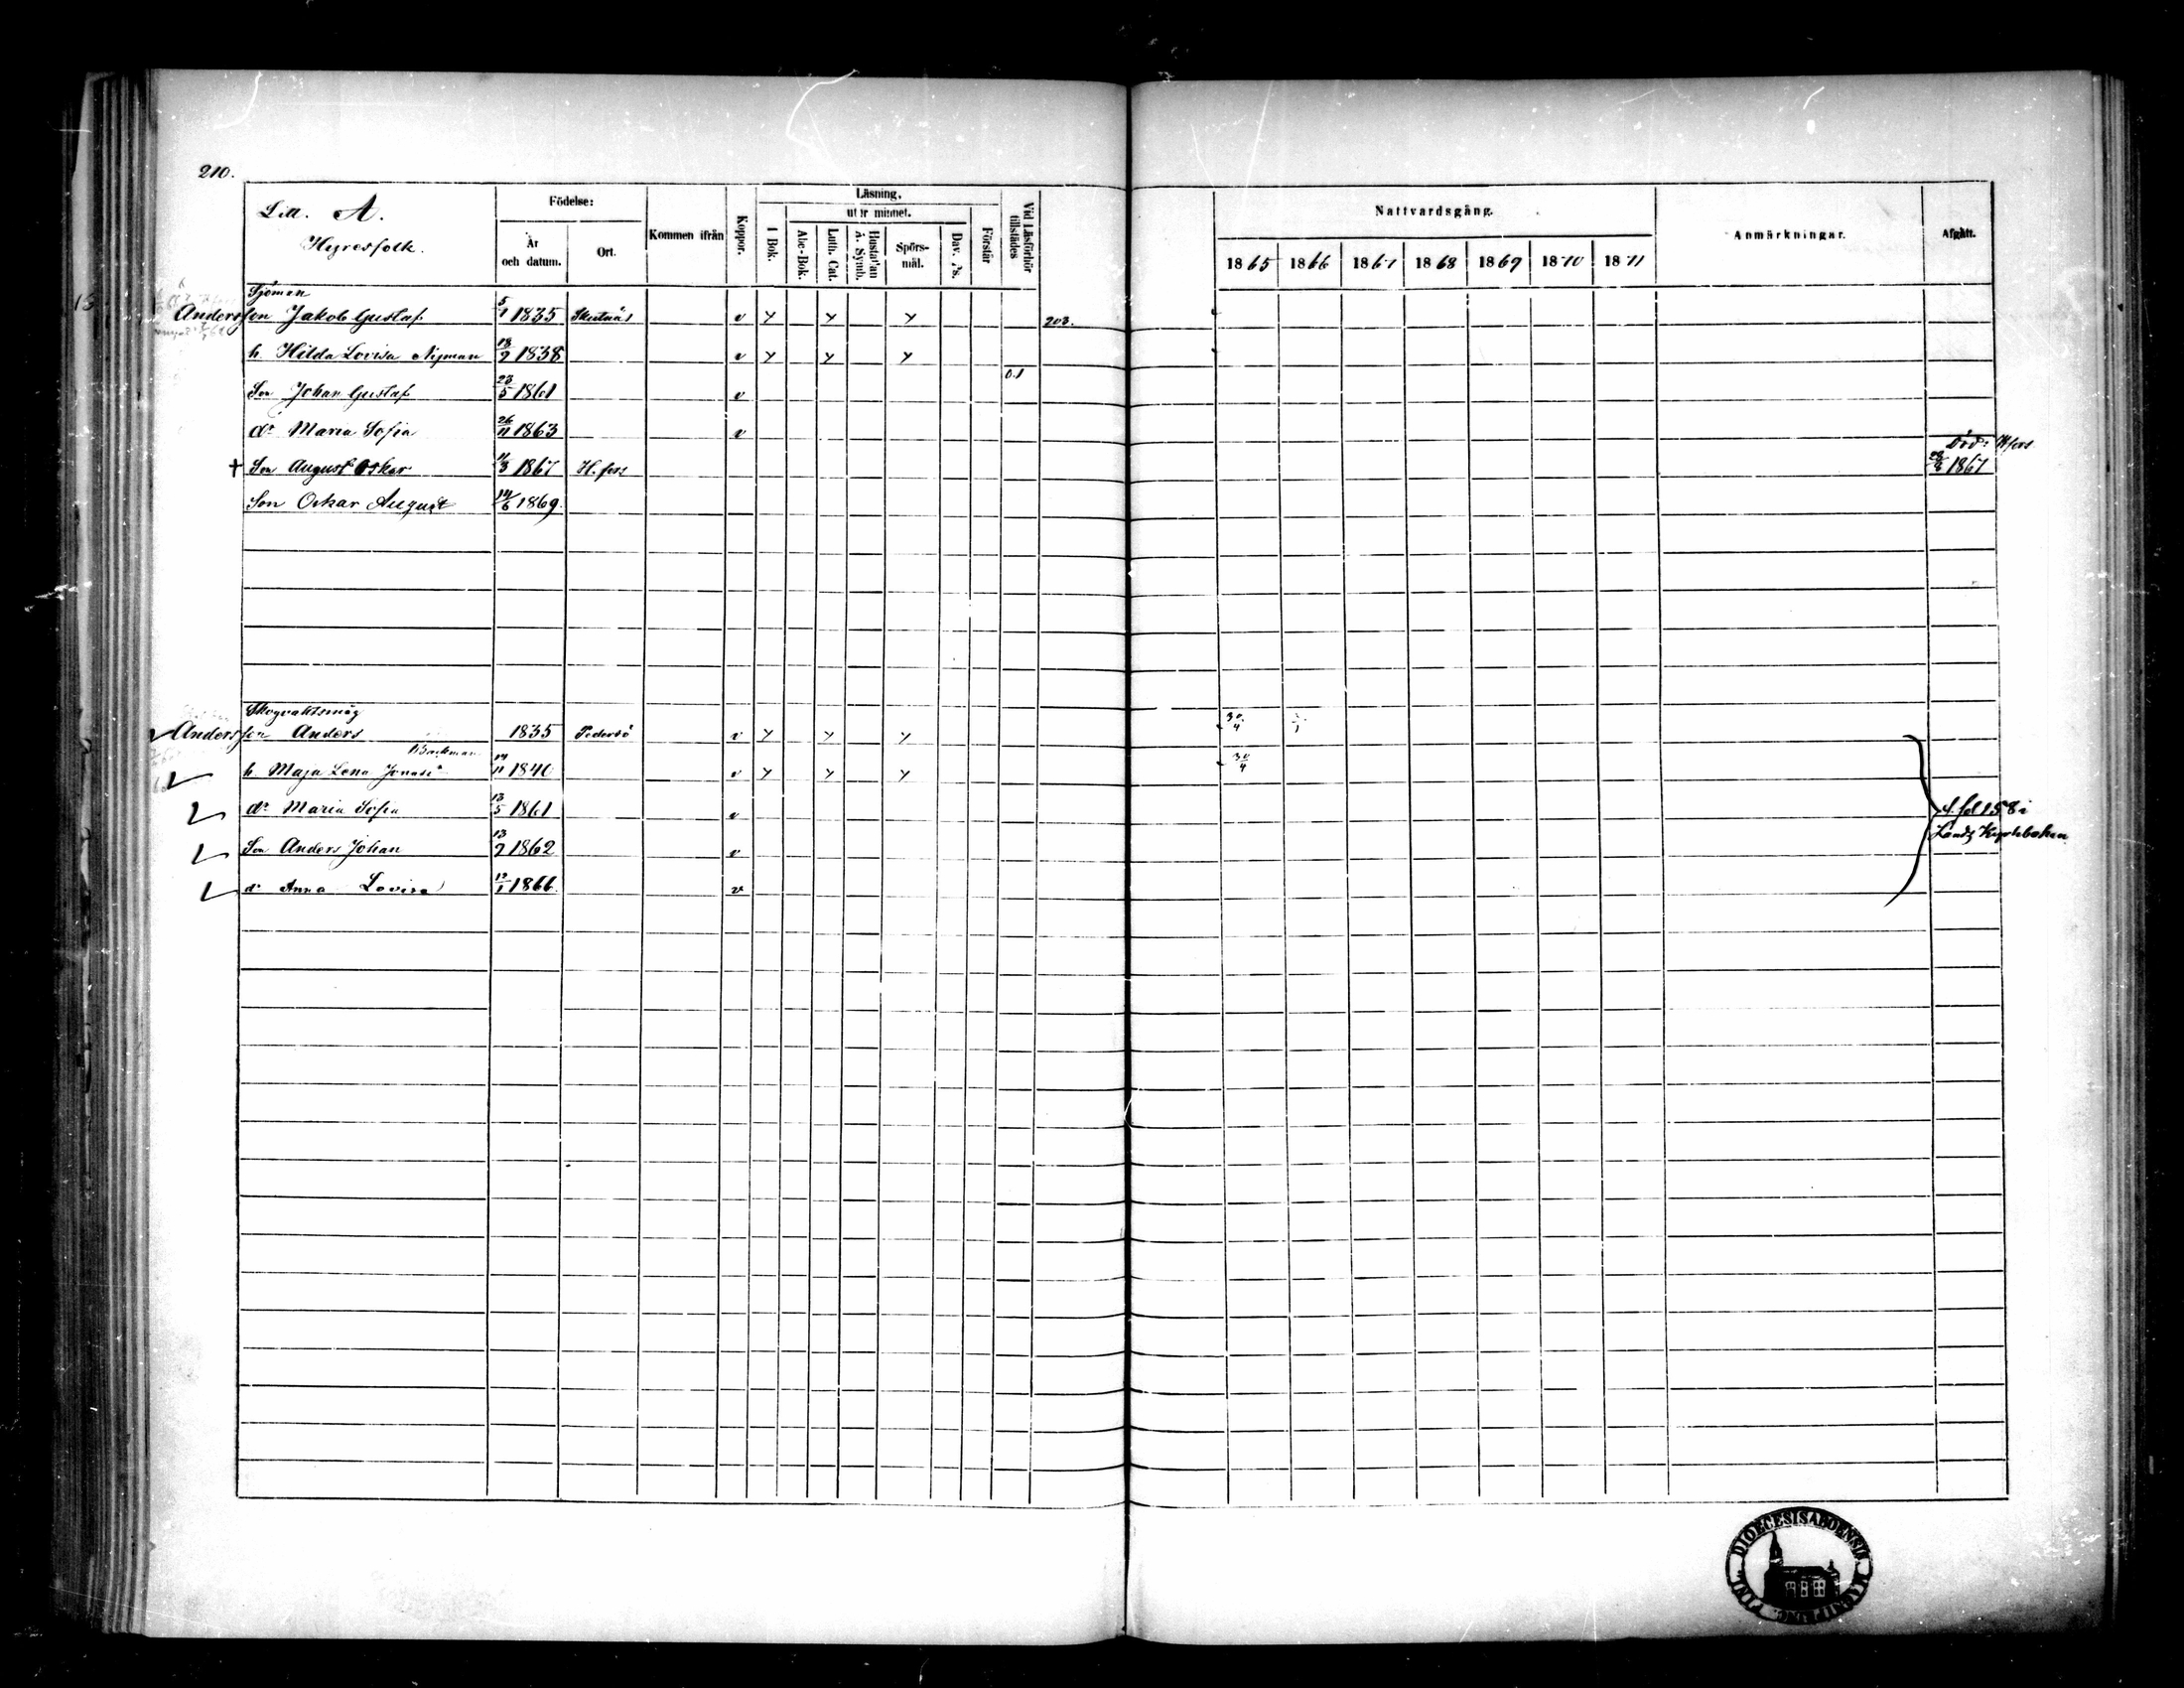 210.
Litt. A.
Hyresfolk.
Födelse:
År och datum.
Ort.
Kommen ifrån
Koppor.
Läsning.
utur minnet.
I Bok.
Abc-Bok.
Luth. Cat.
Hustaflan
A. Symb.
Spörsmål.
Dav. Ps.
Förstår
Vid Läsförhör tillstädes
Nattvardsgång.
1865 1866 1867 1868 1869 1870 1871
Anmärkningar.
Afgått.
Sjöman
Andersson Jakob Gustaf 5/1 1835 Skutnäs v y y y 203.
h. Hilda Lovisa Nyman 18/9 1838 v y y y
0.1
Son Johan Gustaf 23/5 1861 v
dr Maria Sofia 26/11 1863 v
Död: Hfors
+ Son August Oskar 16/3 1867 H.fors 28/8 1867
Son Oskar August 14/6 1869.
Skogvaktsmåg
Andersson Anders 1835 Pedersö v y y y 30/4
Backman
h. Maja Lena Jonasdr 14/11 1840 v y y y 30/4
dr Maria Sofia 13/5 1861 v
Son Anders Johan 13/9 1862 v
dr Anna Lovisa 12/1 1866. v
f. fol 158 i
Lands Kyrkoboken
DIOECESIS ABOENSIS MAGNI PRINC. FINL.